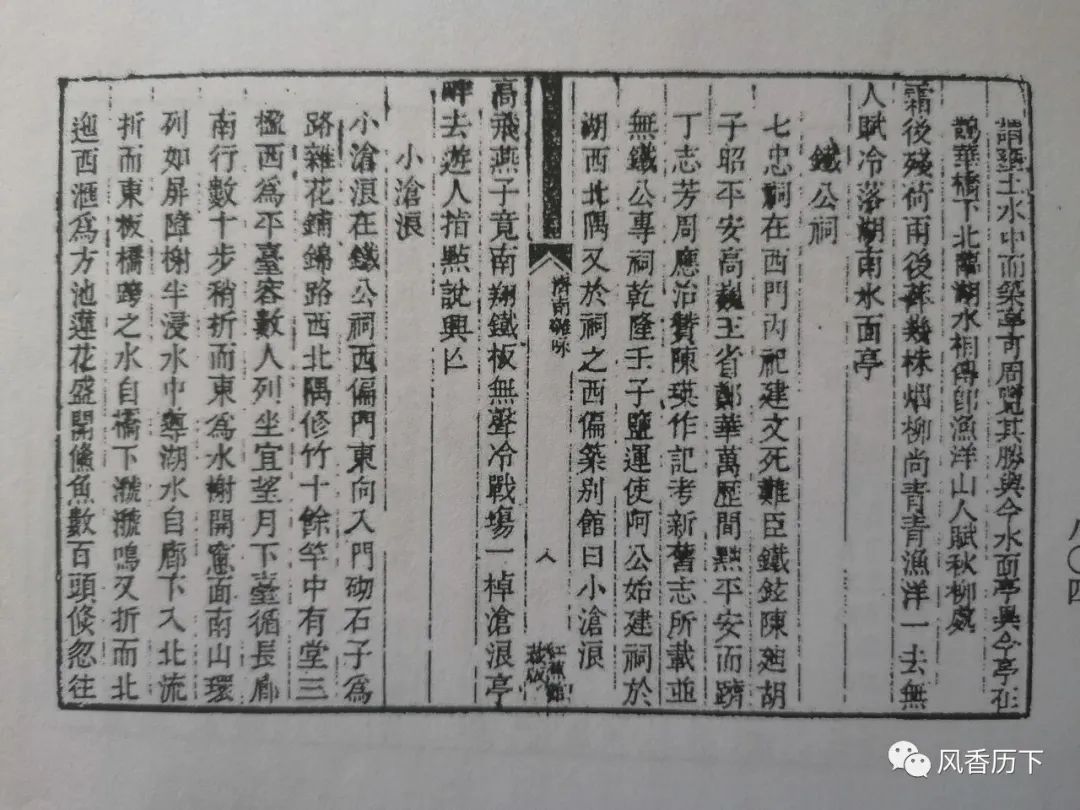 謂築土水中而築亭可周覽其勝與今水面亭異今亭在
鵲華橋下北臨湖水相傳即漁洋山人賦秋柳處
霜後殘荷雨後萍幾株烟柳尚青青漁洋一去無
人賦冷落湖南水面亭
鐵公祠
七忠祠在西門內祀建文死難臣鐵鉉陳迪胡
子昭平安高巍王省鄭華萬歷間黜平安而躋
丁志芳周應治贊陳瑛作記考新舊志所載並
無鐵公專祠乾隆壬子鹽運使阿公始建祠於
湖西北隅又於祠之西偏築別館曰小滄浪
濟南雜咏
八
紅蕉館
藏版
高飛燕子竟南翔鐵板無聲冷戰塲一棹滄浪亭
畔去遊人指點說興亡
小滄浪
小滄浪在鐵公祠西偏門東向入門砌石子為
路雜花鋪錦路西北隅修竹十餘竿中有堂三
楹西為平臺容數人列坐宜望月下臺循長廊
南行數十步稍折而東為水榭開窻面南山環
列如屏障榭半浸水中導湖水自廊下入北流
折而東板橋跨之水自橋下㶁㶁鳴又折而北
迤西滙為方池蓮花盛開鯈魚數百頭倐忽往
八〇四
风香历下